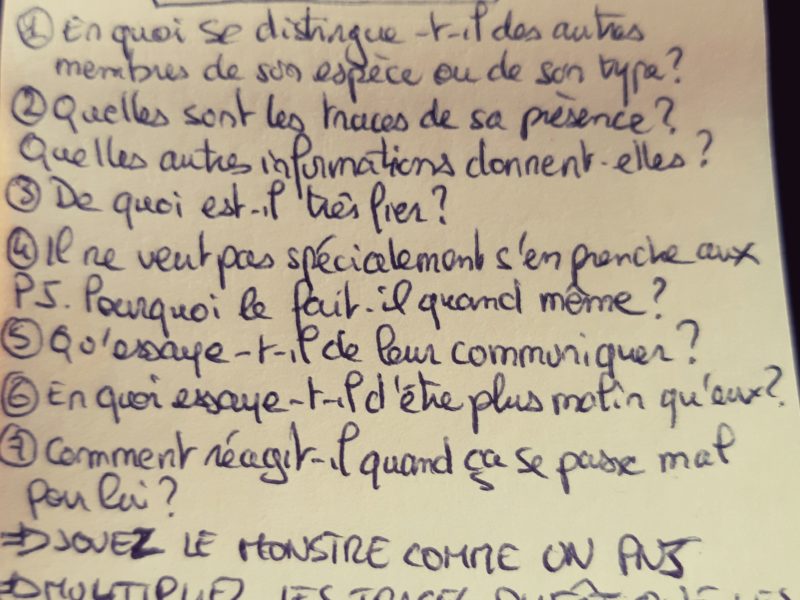 ① En quoi se distingue-t-il des autres
membres de son espèce ou de son type?
② Quelles sont les traces de sa présence?
Quelles autres informations donnent-elles?
③ De quoi est-il très fier?
④ Il ne veut pas spécialement s'en prendre aux
PJ. Pourquoi le fait-il quand même?
⑤ Qu'essaye-t-il de leur communiquer?
⑥ En quoi essaye-t-il d'être plus malin qu'eux?
⑦ Comment réagit-il quand ça se passe mal
pour lui?
⇒ JOUEZ LE MONSTRE COMME UN PNJ
⇒ MULTIPLIEZ LES TRACES